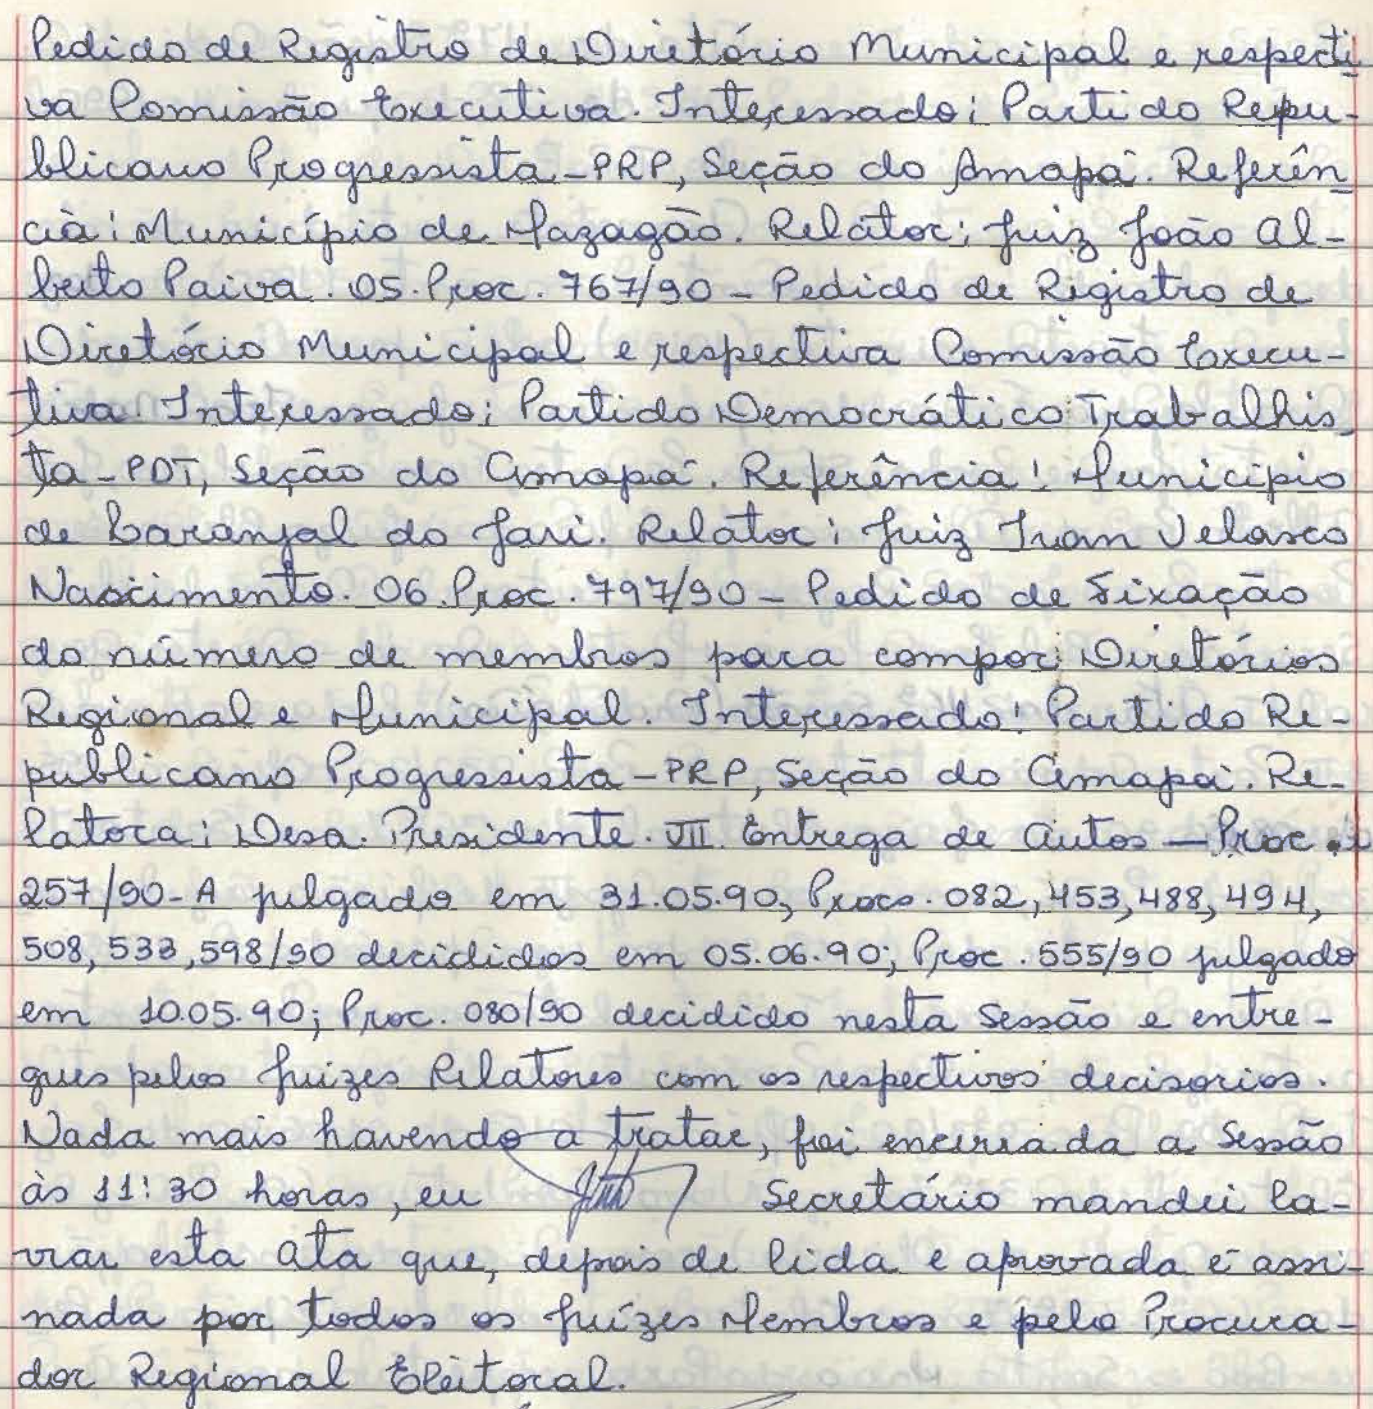 Pedido de Registro de Diretório Municipal e respecti-
va Comissão Executiva. Interessado: Partido Repu-
blicano Progressista - PRP, Seção do Amapá. Referên-
cia: Município de Mazagão. Relator: Juiz João Al-
berto Paiva. 05. Proc. 767/90 - Pedido de Registro de
Diretório Municipal e respectiva Comissão Execu-
tiva. Interessado: Partido Democrático Trabalhis-
ta - PDT, Seção do Amapá. Referência: Município
de Laranjal do Jari. Relator: Juiz Ivan Velasco
Nascimento. 06. Proc. 797/90 - Pedido de Fixação
do número de membros para compor Diretórios
Regional e Municipal. Interessado: Partido Re-
publicano Progressista - PRP, Seção do Amapá. Re-
latora: Desa. Presidente. VII Entrega de Autos — Proc.
257/90-A julgado em 31.05.90, Procs. 082, 453, 488, 494,
508, 533, 598/90 decididos em 05.06.90; Proc. 555/90 julgado
em 10.05.90; Proc. 080/90 decidido nesta Sessão e entre-
gues pelos Juizes Relatores com os respectivos decisorios.
Nada mais havendo a tratar, foi encerrada a Sessão
às 11:30 horas, eu Secretário mandei la-
vrar esta Ata que, depois de lida e aprovada é assi-
nada por todos os Juízes Membros e pelo Procura-
dor Regional Eleitoral.